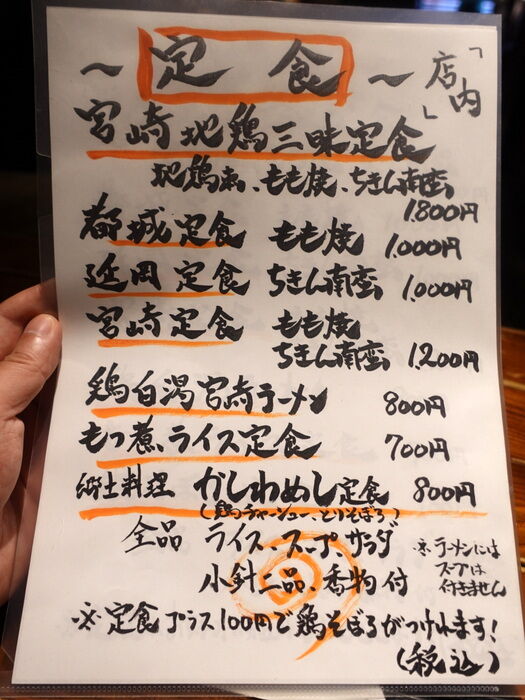 ～定食～「店内」
宮崎地鶏三昧定食
地鶏刺、もも焼、ちきん南蛮
1.800円
都城定食 もも焼 1.000円
延岡定食 ちきん南蛮 1.000円
宮崎定食 もも焼
ちきん南蛮 1.200円
鶏白湯宮崎ラーメン 800円
もつ煮ライス定食 700円
郷土料理 かしわめし定食 800円
(鶏チャーシュー、とりそぼろ)
全品 ライス、スープ、サラダ
小針二品、香物付
※ラーメンには
スープは
付きません
※定食プラス100円で鶏そぼろがつけれます!
(税込)